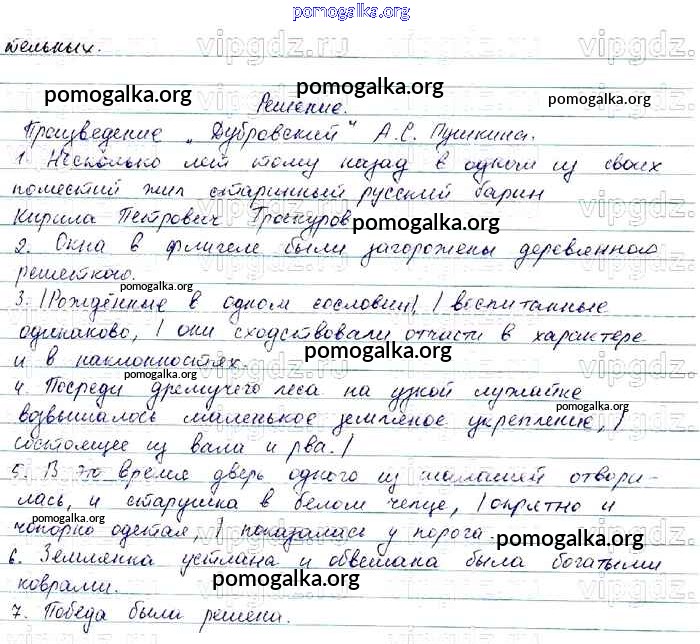 pomogalka.org
тельных.
vipgdz.ru vipgdz.ru vipgdz.
pomogalka.org pomogalka.org
Решение.
Произведение „Дубровский" А.С. Пушкина.
1. Несколько лет тому назад в одном из своих
поместий жил старинный русский барин
Кирила Петрович Троекуров
pomogalka.org
2. Окна в флигеле были загорожены деревянною
решеткою.
pomogalka.org
3. |Рождённые в одном сословии,| |воспитанные
одинаково,| они сходствовали отчасти в характере
и в наклонностях.
pomogalka.org
pomogalka.org
4. Посреди дремучего леса на узкой лужайке
возвышалось маленькое земляное укрепление,|
pomogalka.org
состоящее из вала и рва.|
5. В это время дверь одного из шалашей отвори-
лась, и старушка в белом чепце, |опрятно и
pomogalka.org
чопорно одетая,| показалась у порога.
pomogalka.org
6. Землянка устлана и обвешана была богатыми
коврами.
pomogalka.org
7. Победа были решена.
pomogalka.org